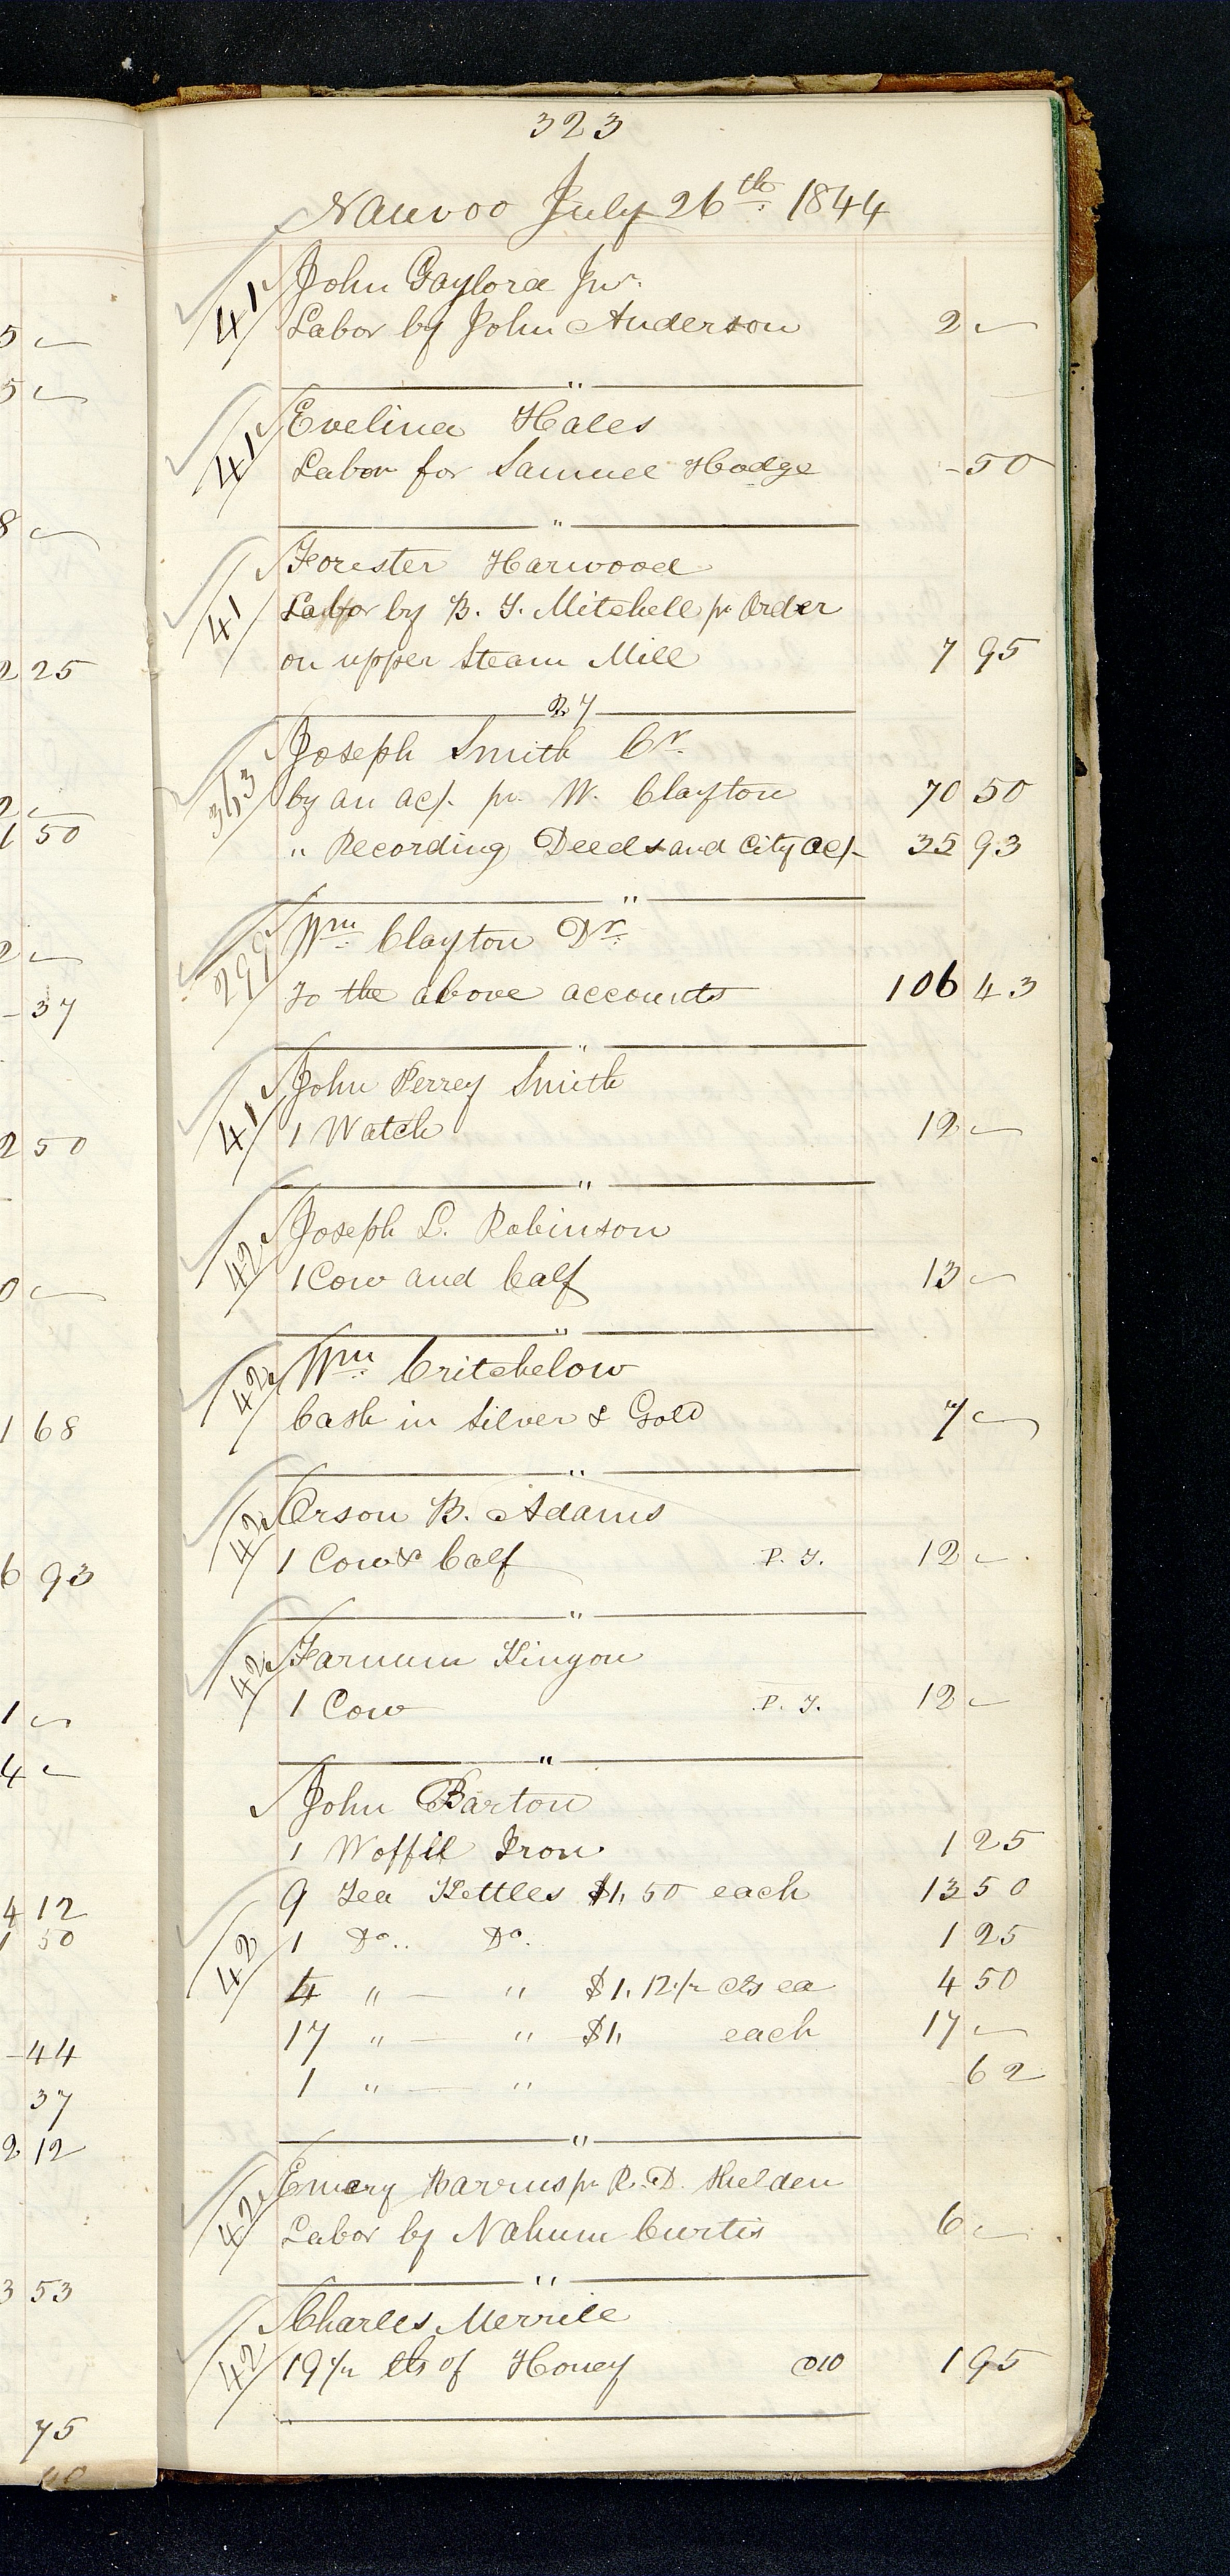 323
Nauvoo July 26th 1844
41 John Gaylord Jur.
Labor by John Anderson 2 —
"
41 Evelina Hales
Labor for Samuel Hodge - 50
"
41 Forester Harwood
Labor by B. T. Mitchell pr Order
on upper Steam Mill 7 95
27
363 Joseph Smith Cr.
by an ac/. pr. W. Clayton 70 50
" Recording Deeds and City ac/. 35 93
"
299 Wm Clayton Dr.
To the above accounts 106 43
"
41 John Perrey Smith
1 Watch 12 —
"
42 Joseph L. Robinson
1 Cow and Calf 13 —
"
42 Wm Critchelow
Cash in Silver & Gold 7 —
"
42 Orson B. Adams
1 Cow & Calf P. T. 12 —
"
42 Farnum Kingon
1 Cow P. T. 12 —
"
John Barton
1 Woffil Iron 1 25
9 Tea Kettles $1,50 each 13 50
42 1 Do.. Do. 1 25
4 " — " $1.12 1/2 cts ea 4 50
17 " — " $1, each 17 —
1 " — " 62
"
42 Emery Barrus pr R. D. Shelden
Labor by Nahum Curtis 6 —
"
42 Charles Merrill
19 1/2 lbs of Honey @10 1 95
5 —
5 —
8 —
2 25
2 —
1 50
2 —
- 37
2 50
0 —
1 68
6 93
1 —
4 —
4 12
1 50
- 44
37
2 12
3 53
75